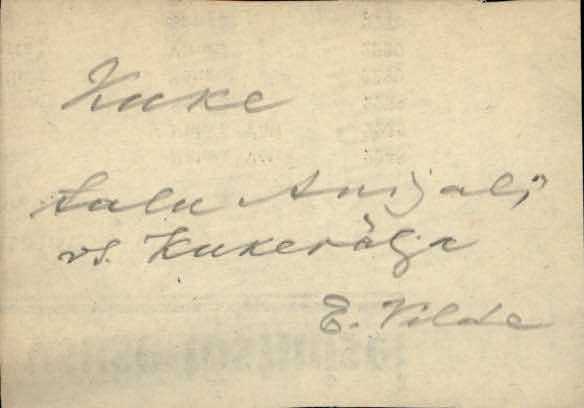 Kuke
talu Anijal,
vs. Kukerälja
E. Vilde